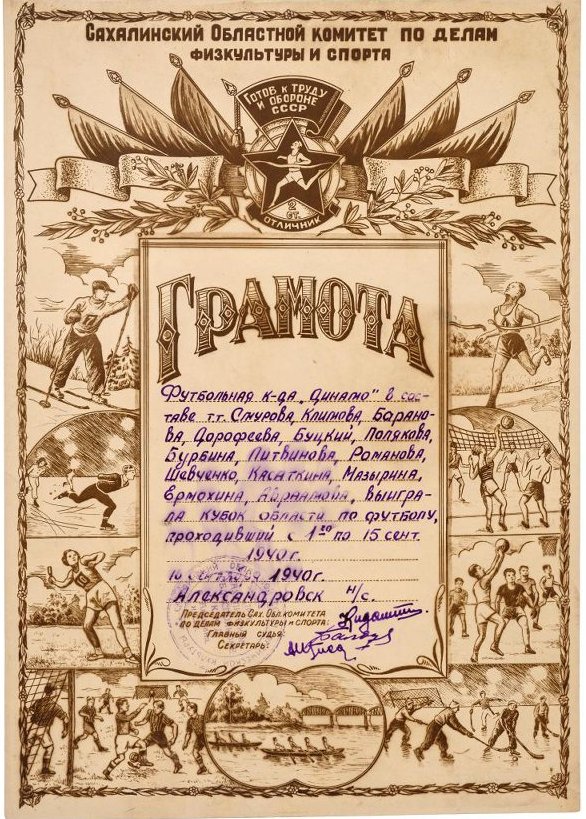 Сахалинский Областной комитет по делам
физкультуры и спорта
Готов к труду
и обороне
СССР
2
ст.
отличник
Грамота
Футбольная к-да „Динамо" в сос-
таве т.т. Смурова, Климова, Барано-
ва, Дорофеева, Буцкий, Полякова,
Бурбина, Литвинова, Романова,
Шевченко, Касаткина, Мазырина,
Ермохина, Авраамова, выигра-
ла кубок области по футболу,
проходивший с 1го по 15 сент.
1940 г.
16 сентября 1940г.
Александровск н/с.
Председатель Сах. Обл. комитета
по делам физкультуры и спорта:
Главный судья:
Секретарь: